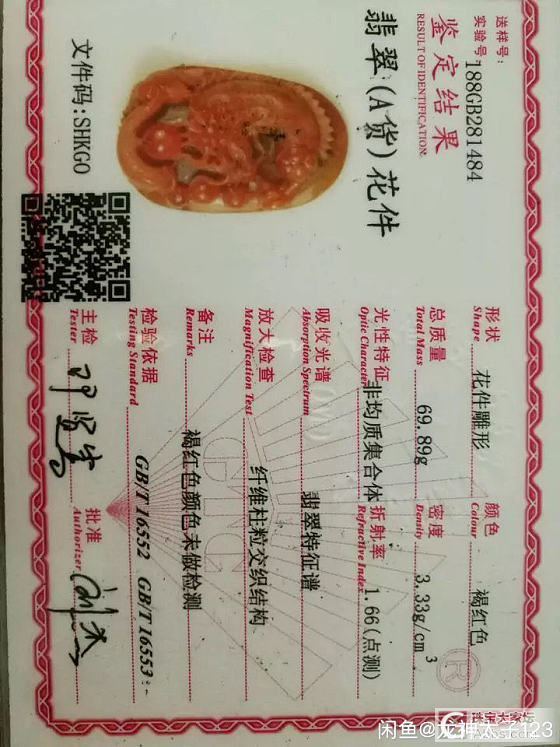 送样号:
实验号 188GB281484
鉴定结果
RESULT OF IDENTIFICATION
翡翠(A货)花件
文件码:SHKGO
形状 花件雕形 颜色 褐红色
Shape Colour
总质量 69.89g 密度 3.33g/cm³
Total Mass Density
光性特征 非均质集合体 折射率 1.66(点测)
Optic Character Refractive Index
吸收光谱 翡翠特征谱
Absorption Spectrum
放大检查 纤维柱粒交织结构
Magnification Test
备注 褐红色颜色未做检测
Remarks
检验依据 GB/T 16552 GB/T 16553
Testing Standard
主检 批准
Tester Authorizer
R
珠宝大家坛
闲鱼@龙神太子123